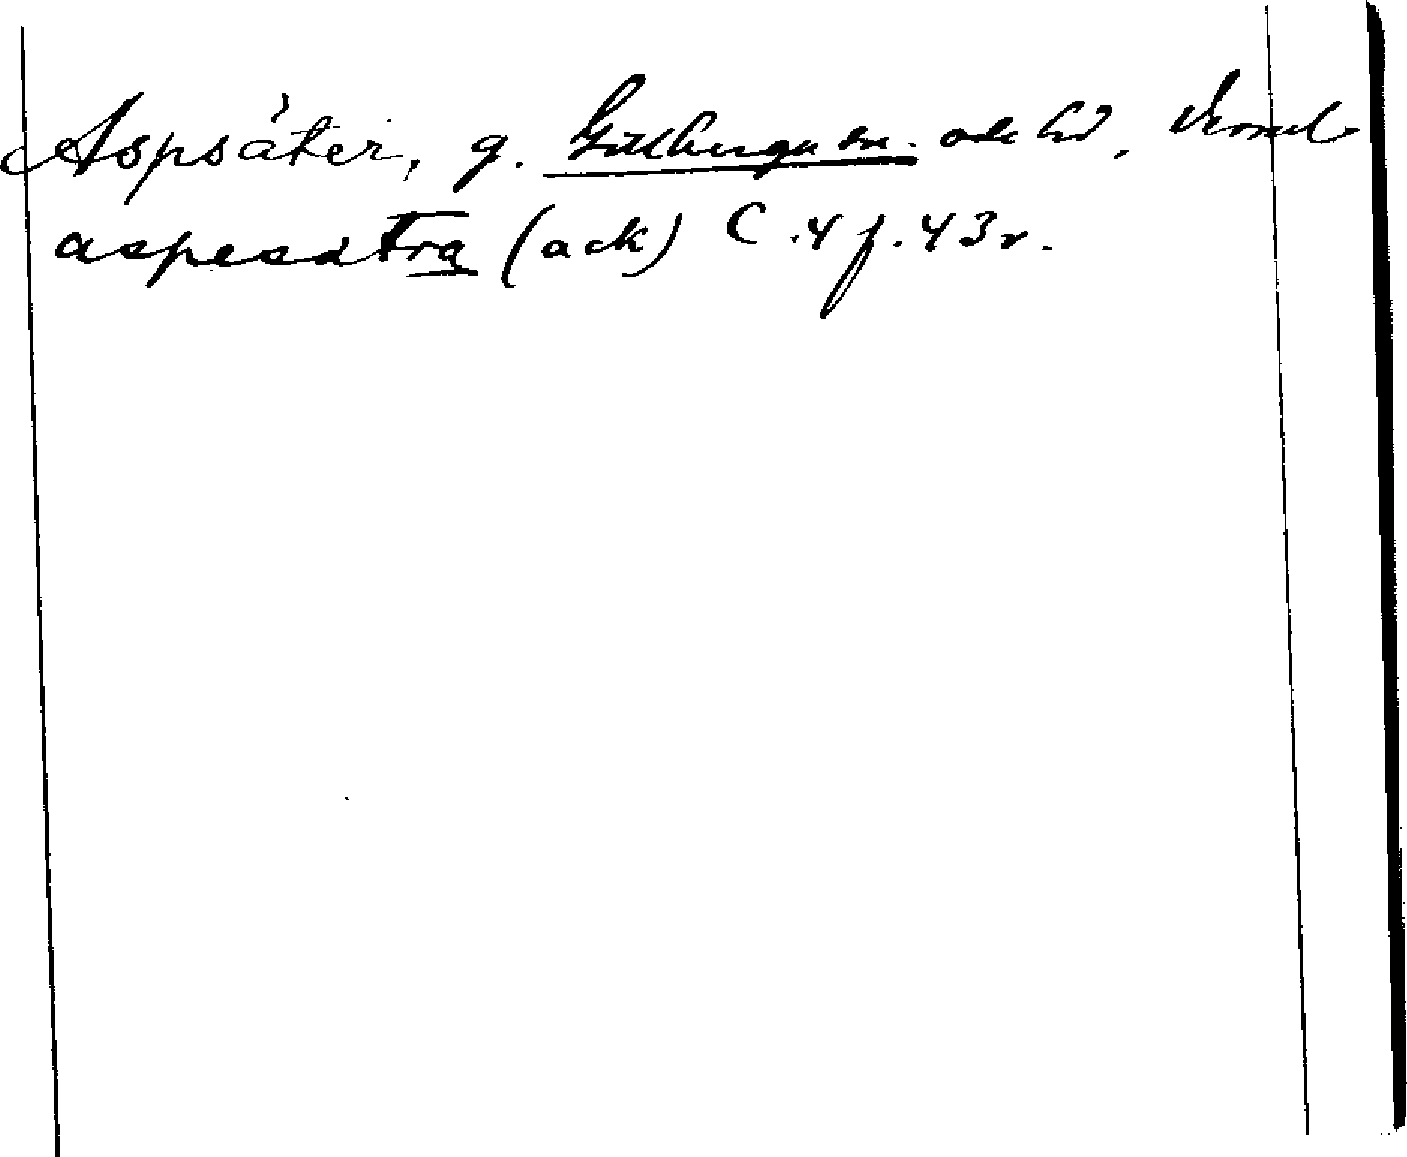 Aspsäter, g. Gillberga sn. och hd, Värml
aspesätra (ack) C.4 f. 43r.